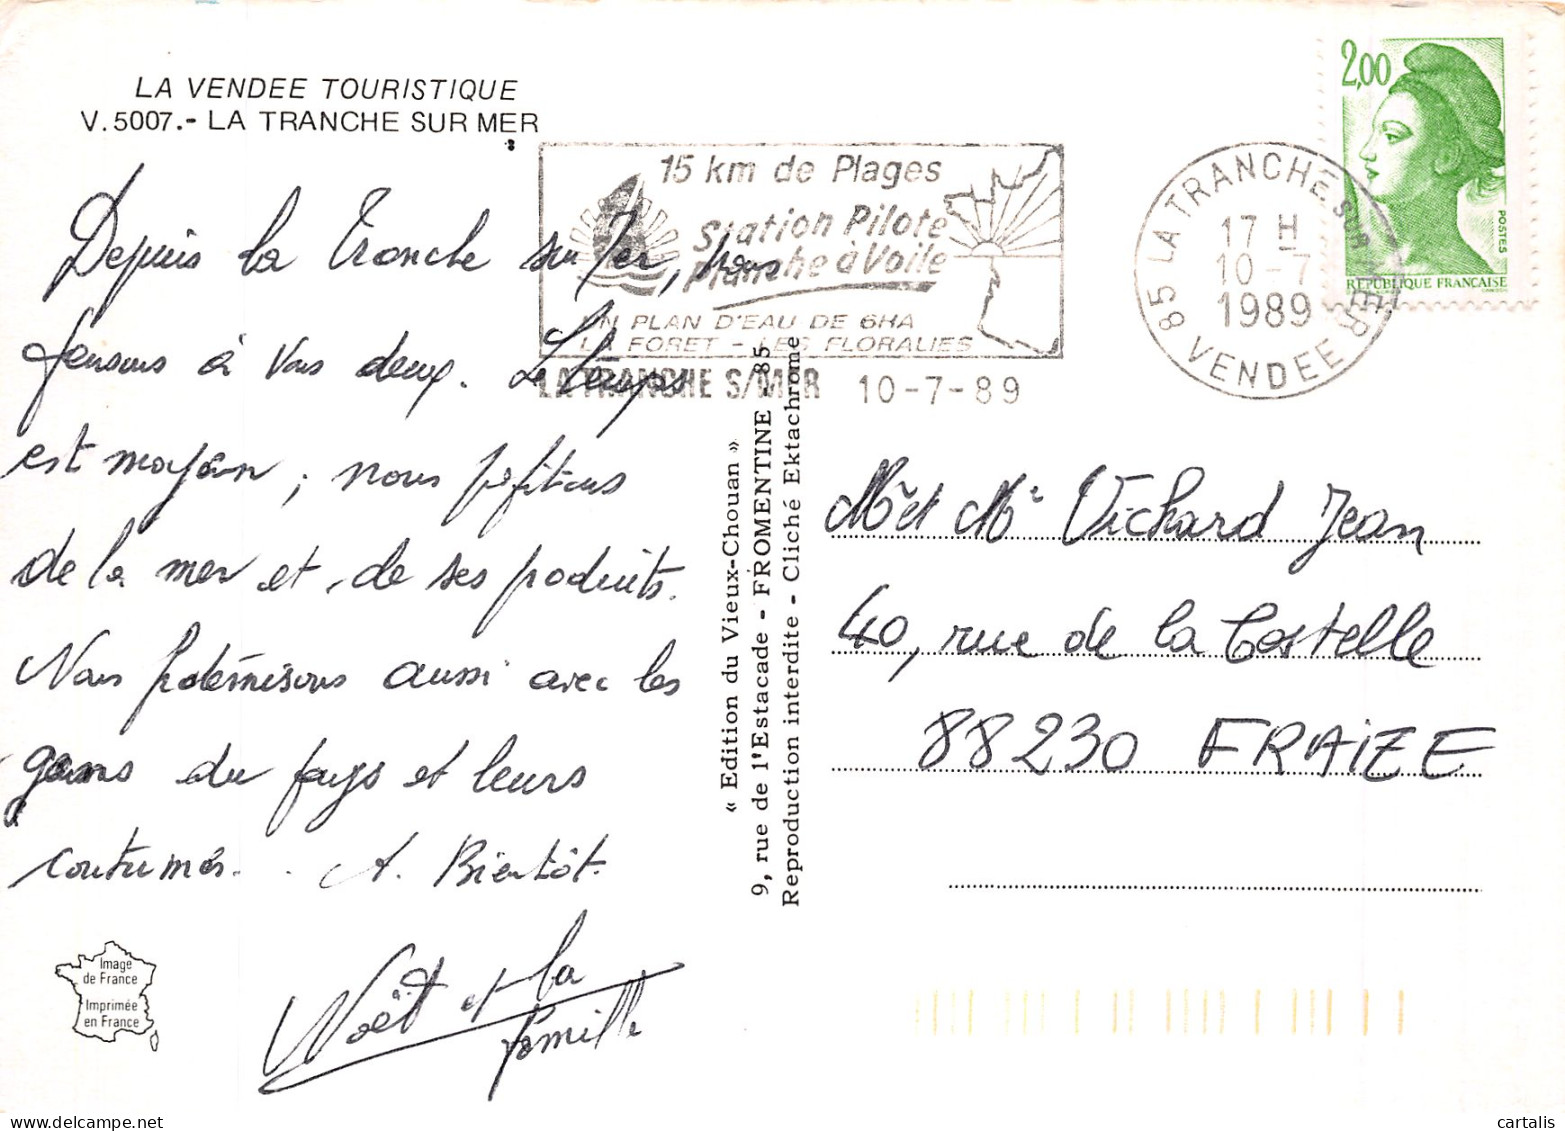 LA VENDEE TOURISTIQUE
V. 5007.- LA TRANCHE SUR MER
Depuis la Tranche sur Mer, nous
pensons à vous deux. Le temps
est moyen, nous profitons
de la mer et de ses produits.
Nous polémisons aussi avec les
gens du pays et leurs
coutumes. A Bientôt.
Noët et la
famille
Image
de France
Imprimée
en France
15 km de Plages
Station Pilote
Planche à Voile
UN PLAN D'EAU DE 6HA
LA FORET - LES FLORALIES
LA TRANCHE S/MER 10-7-89
85 LA TRANCHE SUR MER
17 H
10-7
1989
VENDEE
2,00
POSTES
REPUBLIQUE FRANCAISE
« Edition du Vieux-Chouan »
9, rue de l'Estacade - FROMENTINE - 85
Reproduction interdite - Cliché Ektachrome
Mr et Me Vichard Jean
40, rue de la Costelle
88230 FRAIZE
cartalis